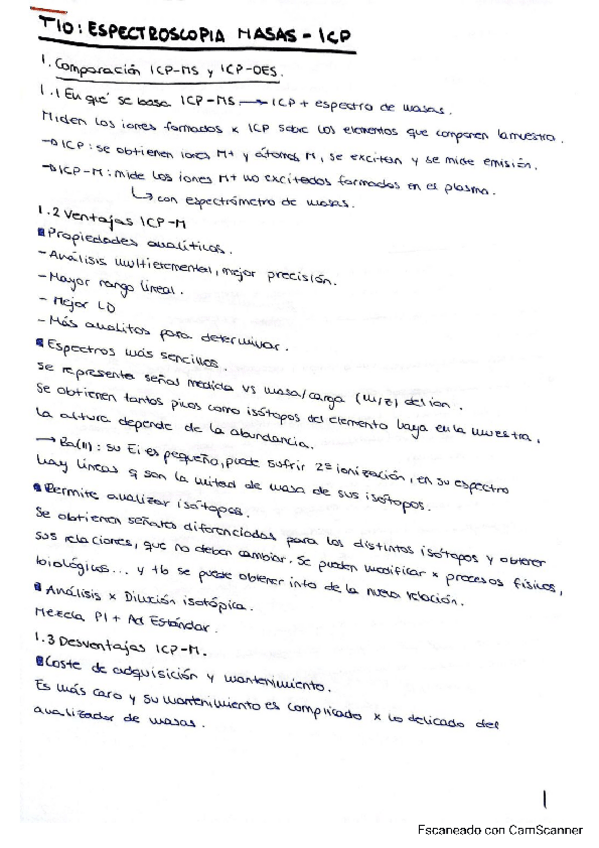 T10: ESPECTROSCOPIA MASAS - ICP
1. Comparación ICP-MS y ICP-OES.
1.1 En qué se basa ICP-MS → ICP + espectro de masas.
Miden los iones formados x ICP sobre los elementos que componen la muestra.
→ ICP: se obtienen iones M+ y átomos M, se excitan y se mide emisión.
→ ICP-M: mide los iones M+ no excitados formados en el plasma.
↳ con espectrómetro de masas.
1.2 Ventajas ICP-M
Propiedades analíticas.
- Análisis multielemental, mejor precisión.
- Mayor rango lineal.
- Mejor LD
- Más analitos para determinar.
Espectros más sencillos.
Se representa señal medida vs masa/carga (m/z) del ion.
Se obtienen tantos picos como isótopos del elemento haya en la muestra,
la altura depende de la abundancia.
→ Ba(II): su Ei es pequeño, puede sufrir 2ª ionización, en su espectro
hay líneas q son la mitad de masa de sus isótopos.
Permite analizar isótopos.
Se obtienen señales diferenciadas para los distintos isótopos y obtener
sus relaciones, que no deben cambiar. Se pueden modificar x procesos físicos,
biológicos... y tb se puede obtener info de la nueva relación.
Análisis x Dilución isotópica.
Mezcla PI + Ad Estándar.
1.3 Desventajas ICP-M.
Coste de adquisición y mantenimiento.
Es más caro y su mantenimiento es complicado x lo delicado del
analizador de masas.
1
Escaneado con CamScanner